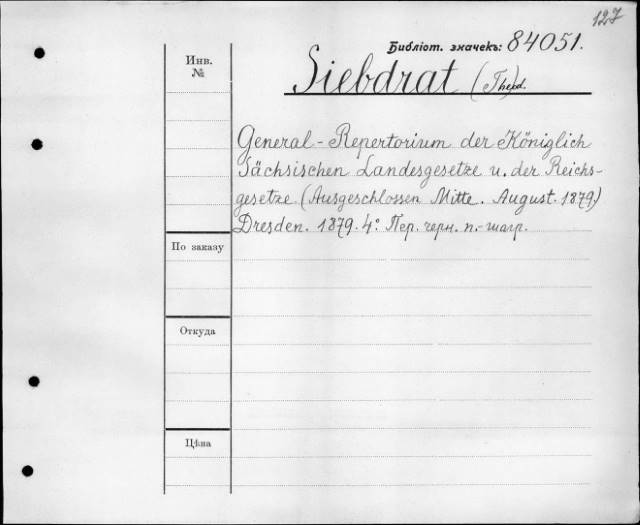 127
Библіот. значекъ: 84051.
Siebdrat (Theod.
Инв.
№
General-Repertorium der Königlich
Sächsischen Landesgesetze u. der Reichs-
gesetze (Ausgeschlossen Mitte. August. 1879.)
Dresden. 1879. 4° Пер. черн. п.-шагр.
По заказу
Откуда
Цѣна